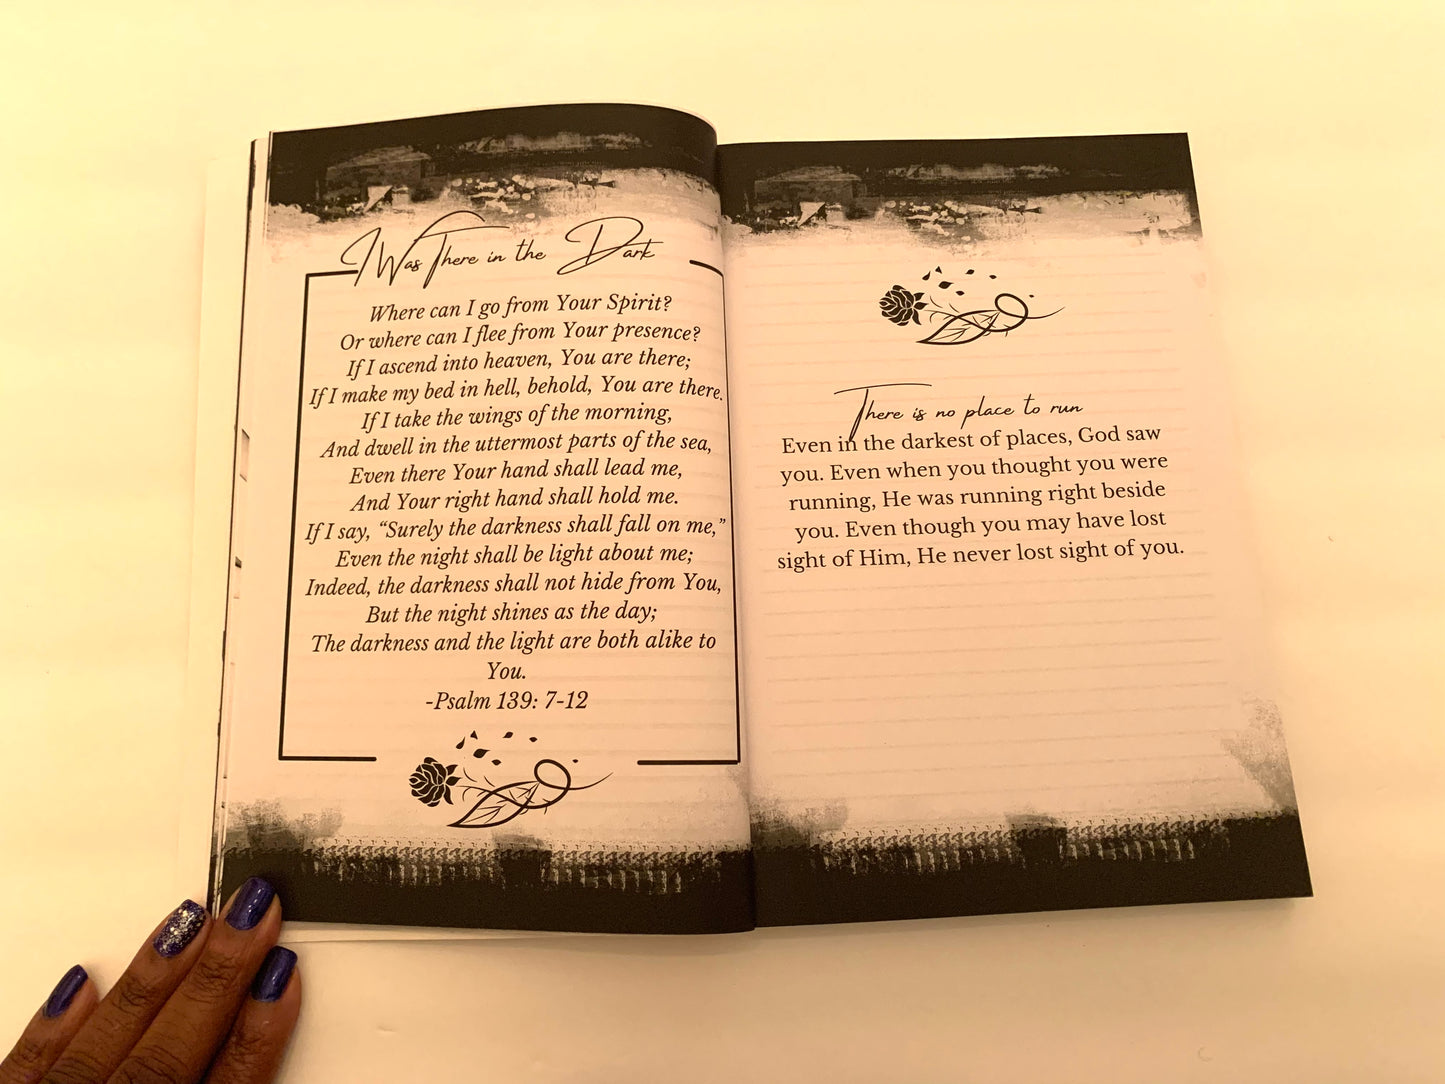 I Was There in the Dark
Where can I go from Your Spirit?
Or where can I flee from Your presence?
If I ascend into heaven, You are there;
If I make my bed in hell, behold, You are there.
If I take the wings of the morning,
And dwell in the uttermost parts of the sea,
Even there Your hand shall lead me,
And Your right hand shall hold me.
If I say, “Surely the darkness shall fall on me,”
Even the night shall be light about me;
Indeed, the darkness shall not hide from You,
But the night shines as the day;
The darkness and the light are both alike to
You.
-Psalm 139: 7-12
There is no place to run
Even in the darkest of places, God saw
you. Even when you thought you were
running, He was running right beside
you. Even though you may have lost
sight of Him, He never lost sight of you.